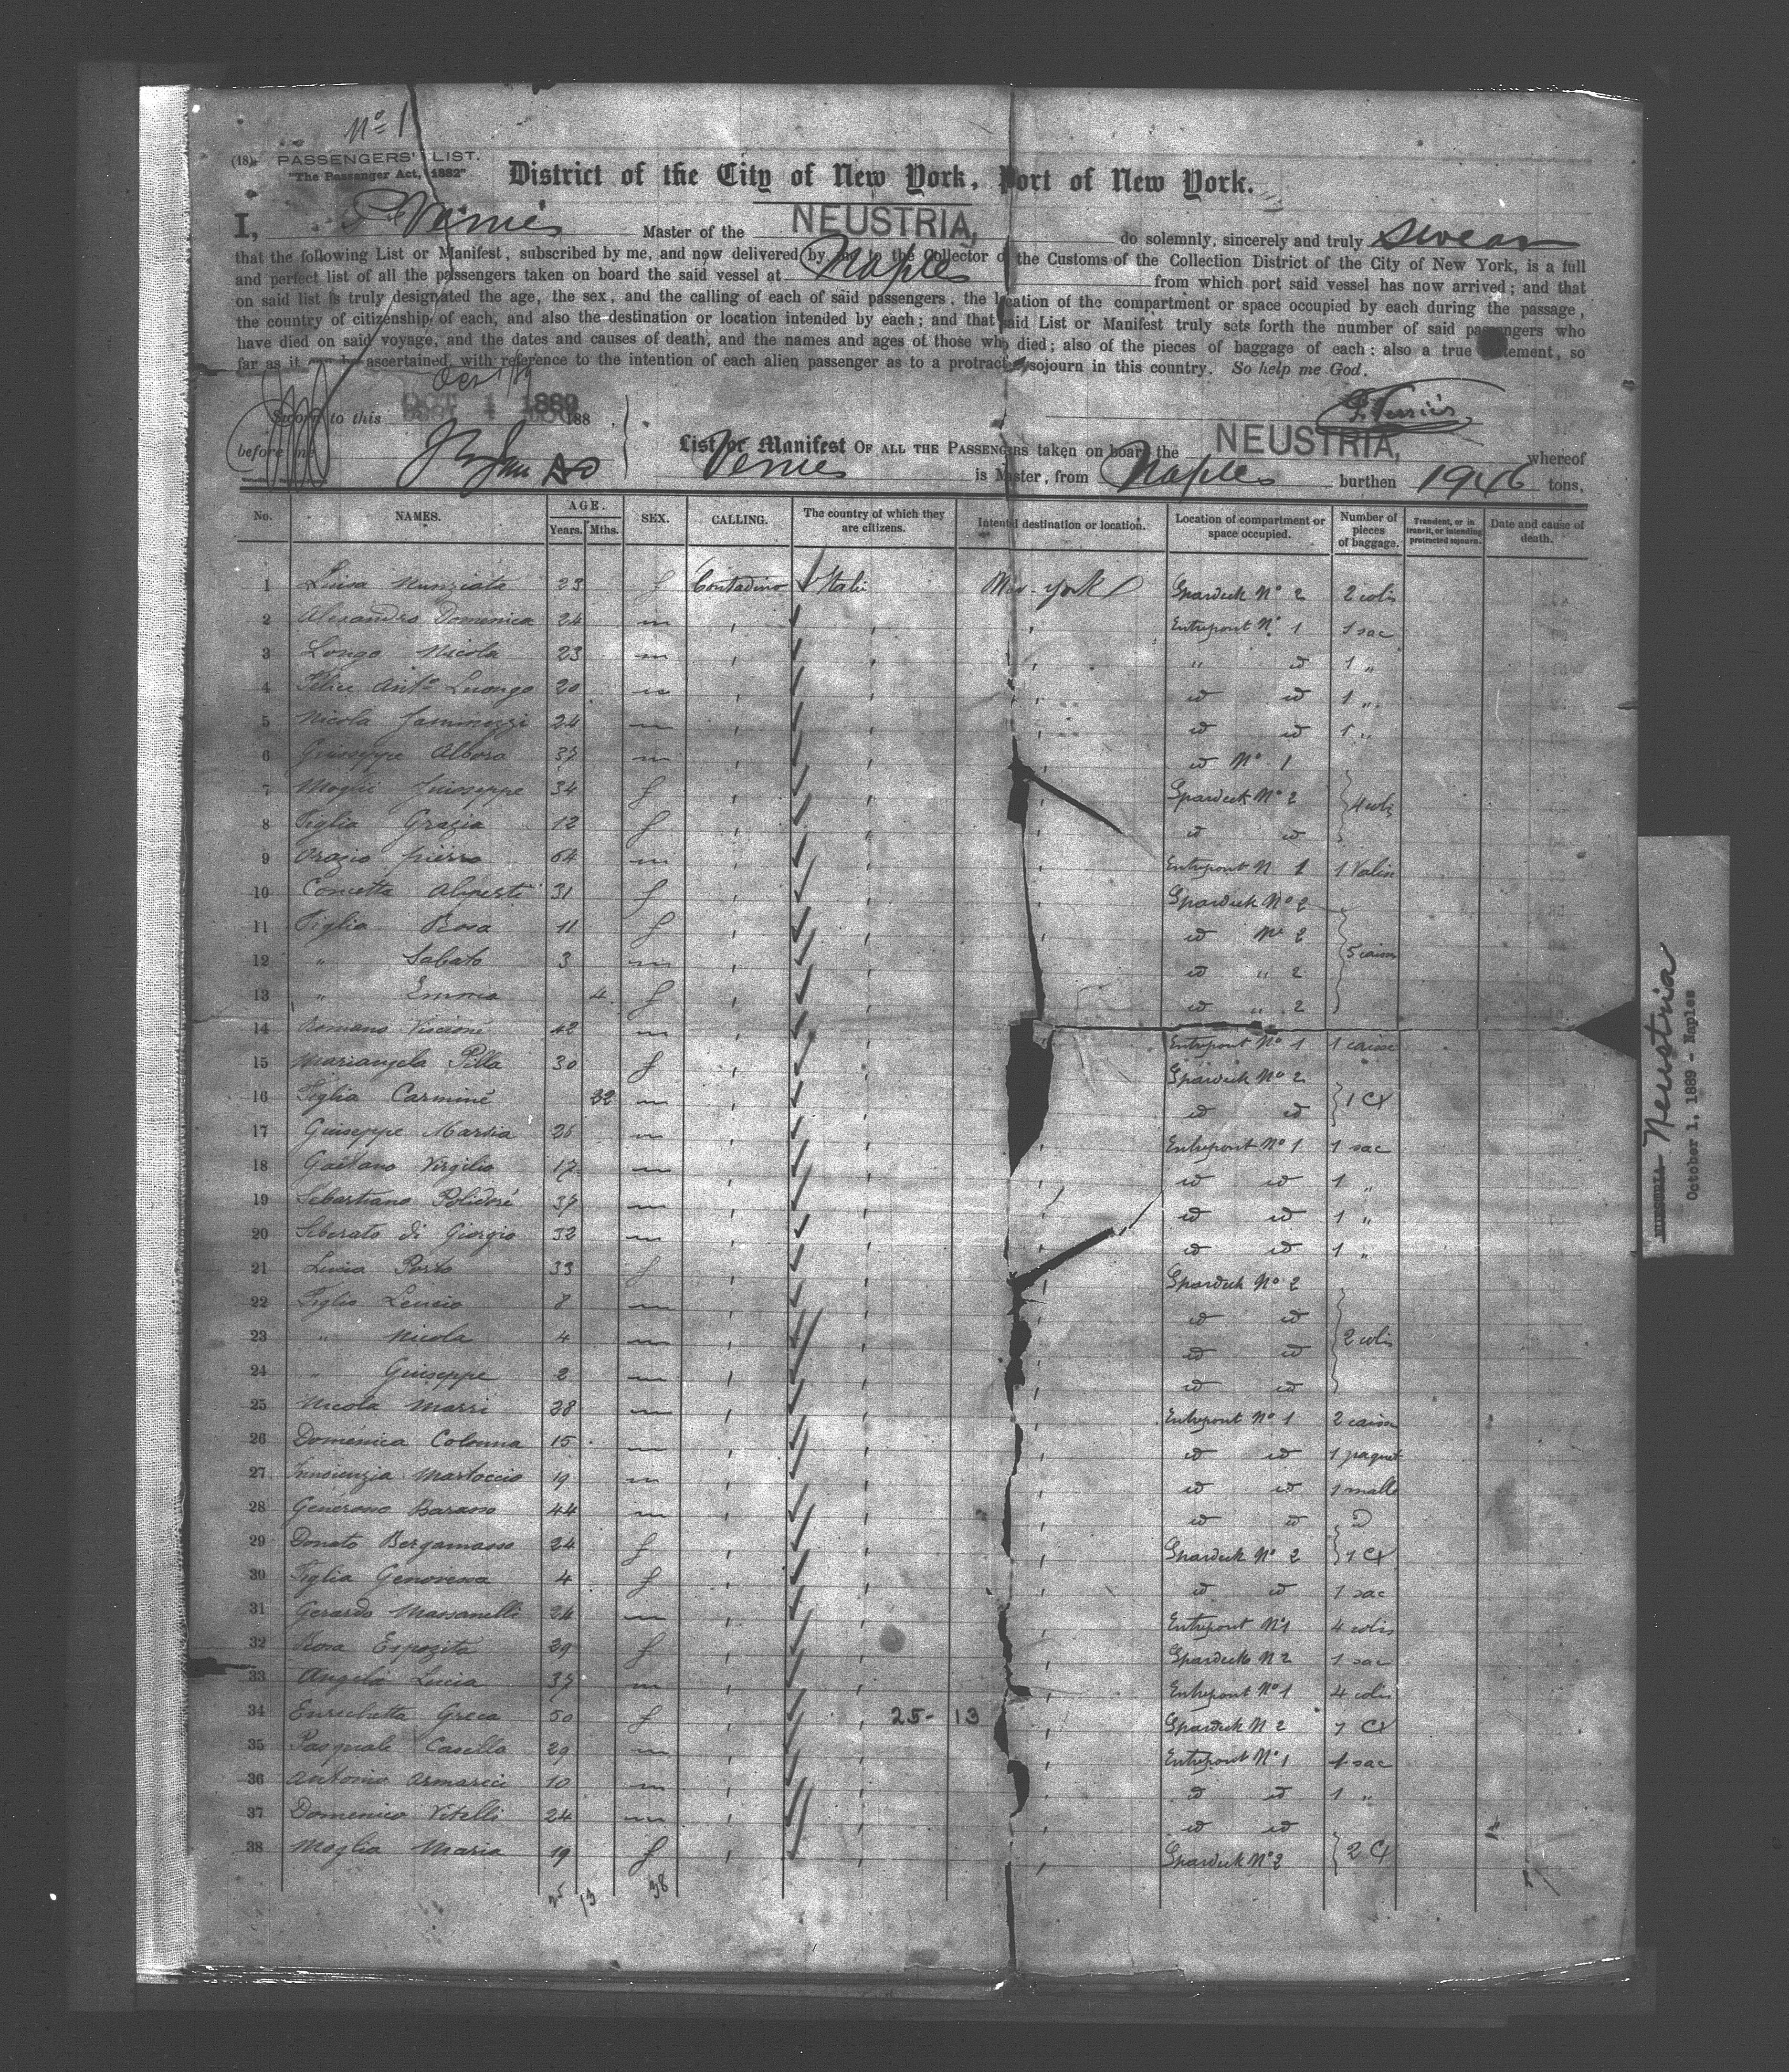 No 1
(18) PASSENGERS' LIST.
"The Passenger Act, 1882"
District of the City of New York, Port of New York.
I, P. Vernies Master of the NEUSTRIA, do solemnly, sincerely and truly swear
that the following List or Manifest, subscribed by me, and now delivered by me to the Collector of the Customs of the Collection District of the City of New York, is a full
and perfect list of all the passengers taken on board the said vessel at Naples from which port said vessel has now arrived; and that
on said list is truly designated the age, the sex, and the calling of each of said passengers, the location of the compartment or space occupied by each during the passage,
the country of citizenship of each, and also the destination or location intended by each; and that said List or Manifest truly sets forth the number of said passengers who
have died on said voyage, and the dates and causes of death, and the names and ages of those who died; also of the pieces of baggage of each: also a true statement, so
far as it can be ascertained, with reference to the intention of each alien passenger as to a protracted sojourn in this country. So help me God.
Sworn to this OCT 1 1889 188
before me
List or Manifest OF ALL THE PASSENGERS taken on board the NEUSTRIA, whereof
Vernies is Master, from Naples burthen 1946 tons.
No. NAMES. AGE. Years. Mths. SEX. CALLING. The country of which they are citizens. Intended destination or location. Location of compartment or space occupied. Number of pieces of baggage. Transient, or in transit, or intending protracted sojourn. Date and cause of death.
1 Luisa Nunziata 23 f Contadino Itali New-York Spardeck No 2 2 colis
2 Alesandro Domenica 24 m Entrepont No 1 1 sac
3 Longo Nicola 23 m " id 1 "
4 Felice Anto Luongo 20 m id id 1 "
5 Nicola 24 m id id 1 "
6 Giuseppe Albora 37 m id No 1
7 Moglie Giuseppe 34 f Spardeck No 2 4 colis
8 Figlia Grazia 12 f id id
9 Orazio Pierro 64 m Entrepont N 1 1 Valise
10 Concetta Aliperti 31 f Spardeck No 2
11 Figlia Rosa 11 f id No 2
12 " Sabato 3 m id " 2 5 caisse
13 " Emma 4 f id " 2
14 Romano Viscione 42 m Entrepont No 1 1 caisse
15 Mariangela Pilla 30 f Spardeck No 2
16 Figlia Carmine 32 m id id 1 Cx
17 Giuseppe Marsia 26 m Entrepont No 1 1 sac
18 Gaetano Virgilio 17 m id id 1 "
19 Sebastiano Polidoré 37 m id id 1 "
20 Liberato di Giorgio 32 m id id 1 "
21 Luisa Porto 33 f Spardeck No 2
22 Figlio Leucio 8 m id id
23 " Nicola 4 m id id 2 colis
24 " Giuseppe 2 m id id
25 Nicola Marri 28 m Entrepont No 1 2 caisse
26 Domenica Colonna 15 m id id 1 paquet
27 Innocenzia Martoccio 19 m id id 1 malle
28 Generoso Barasso 44 m id id id
29 Donato Bergamasso 24 f Spardeck No 2 1 Cx
30 Figlia Genovesa 4 f id id 1 sac
31 Gerardo Massanelli 24 m Entrepont No 1 4 colis
32 Rosa Espozito 39 f Spardeck N 2 1 sac
33 Angela Lucia 37 m Entrepont No 1 4 colis
34 Enrichetta Greca 50 f 25- 13 Spardeck N 2 1 Cx
35 Pasquale Casillo 29 m Entrepont No 1 1 sac
36 Antonio Armarici 10 m id id 1 "
37 Domenico Vitelli 24 m id id
38 Moglia Maria 19 f Spardeck No 2 2 Cx
25 13 38
Neustria
October 1, 1889 - Naples